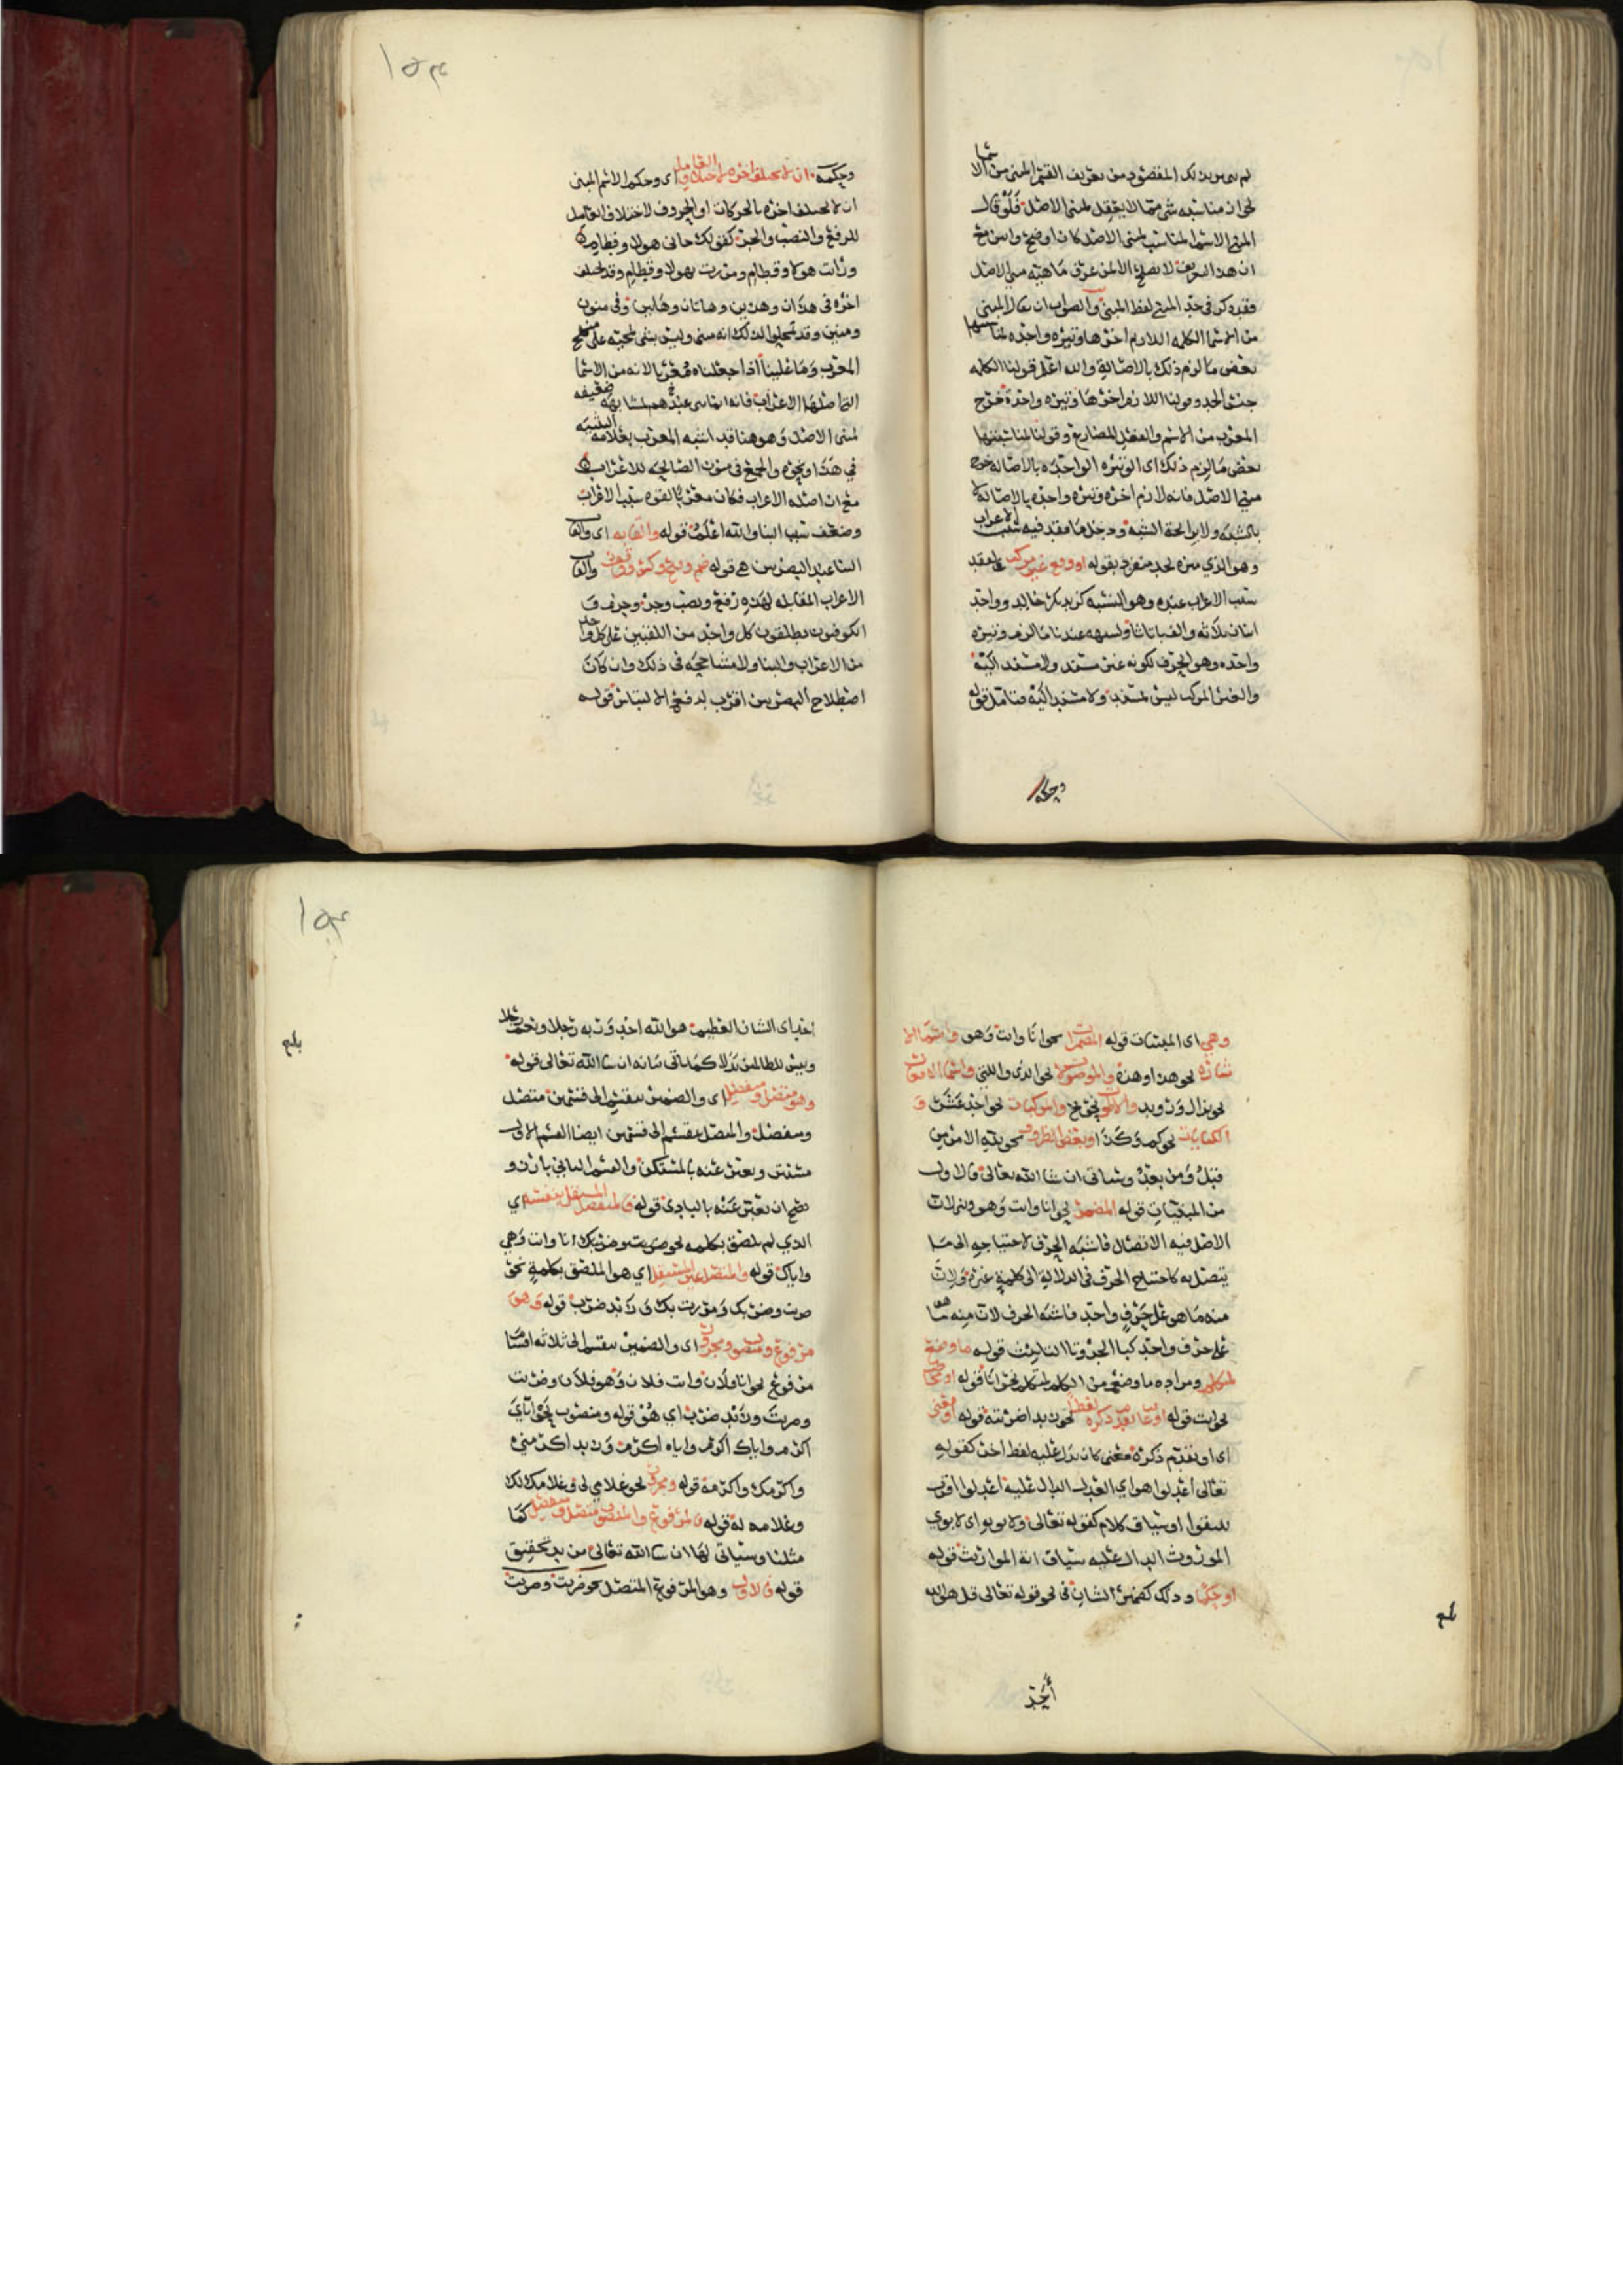 لم يتبين بذلك المقصود من تعريف القسم المبني من الاسما
لجواز مناسبة شي مما لا يعقل لمبني الاصل فلو قال
المبني الاسما المناسب لمبني الاصل كان اوضح
ان هذا التعريف لا يصلح الا لمن عرف ماهية مبني الاصل
فقد ذكر في حد المبني لفظ المبني والصواب ان يقال المبني
من الاسما الكلمه اللازم اخرها وتيره واحده
بعض ما لزم ذلك بالاصالة والله اعلم قولنا الكلمه
جنس الحد وقولنا اللازم اخرها وتيره واحدة خرج
المعرب من الاسم والفعل المضارع وقولنا لمناسبتها
بعض ما لزم ذلك اي الوتيره الواحده بالاصاله خرج
مبني الاصل فانه لازم اخره وتيره واحده بالاصالة لا
بالشبه ولا برايحة الشبه ودخل ما فقد فيه سبب الاعراب
وهو الذي ميزه بحد منفرد بقوله او وقع غير مركب
سبب الاعراب عنده وهو النسبه كزيد بكر خالد وواحد
اثنان ثلاثه والف با تا ثا
واحده وهو الحرف لكونه غير مسند ولا مسند اليه
والغير المركب ليس بمسند ولا مسند اليه فتامل قوله
وحكمه
١٥٣
وحكمه ان لا يختلف اخره لاختلاف العامل اي وحكم الاسم المبني
ان لا يختلف اخره بالحركات او الحروف لاختلاف العامل
للرفع والنصب والجر كقولك جاني هولا وقطام
ورايت هولا وقطام ومررت بهولا وقطام وقد يختلف
اخره في هذان وهذين وهاتان وهاتين وفي منون
ومنين وقد لذلك انه مبني وليس بمثنى لمجيئه على
المعرب واما غلبنا اذا جعلناه معربا لانه من الاسما
التي اصلها الاعراب فانه
لمبني الاصل وهو هنا قد اشبه المعرب بعلامة التثنيه
في هذا ونحوه والجمع في منون الصالحه للاعراب
مع ان اصله الاعراب فكان معربا لقوه سبب الاعراب
وضعف سبب البنا والله اعلم قوله والقابه اي والقاب
البنا عند البصريين هي قوله ضم وفتح وكسر ووقف والقاب
الاعراب المقابله لهذه رفع ونصب وجر وجزم و
الكوفيون يطلقون كل واحد من اللقبين على كل واحد
من الاعراب والبنا ولا مشاححه في ذلك وان كان
اصطلاح البصريين اقرب لدفع الالتباس قوله
وهي اي المبنيات قوله المضمرات نحو انا وانت وهو واسما الا
شاره نحو هذا وهذه والموصولات نحو الذي والتي واسما الافعال
نحو نزال ورويد والاصوات نحو بخ والمركبات نحو احد عشر و
الكنايات نحو كم وكذا وبعض الظروف نحو لله الامر من
قبل ومن بعد وسياتي ان شا الله تعالى فالاول
من المبنيات قوله المضمر نحو انا وانت وهو وبنى لان
الاصل فيه الاتصال فاشبه الحرف لاحتياجه الى ما
يتصل به كاحتياج الحرف في الدلالة الى كلمة غيره ولان
منه ما هو على حرف واحد فاشبه الحرف لان منه ما هو
على حرف واحد كبا الجر وتا التانيث قوله ما وضع
لمتكلم ومراده ما وضع من الكلم لمتكلم نحو انا قوله او مخاطب
نحو انت قوله او غايب تقدم ذكره لفظا نحو زيد اضربته قوله او معنى
اي او تقدم ذكره معنى كان يدل عليه لفظ اخر كقوله
تعالى اعدلوا هو اي العدل الدال عليه اعدلوا اقرب
للتقوا او سياق كلام كقوله تعالى ولابويه اي لابوي
الموروث الدال عليه سياق اية المواريث قوله
او حكما وذلك كضمير الشان في نحو قوله تعالى قل هو الله
احد
بلغ
١٥٤
احد اي الشان العظيم هو الله احد وربه رجلا ونعم رجلا
وبيس للظالمين بدلا كما ياتي بيانه ان شا الله تعالى قوله
وهو متصل ومنفصل اي والضمير ينقسم الى قسمين متصل
ومنفصل والمتصل ينقسم الى قسمين ايضا القسم الاول
مستتر ويعبر عنه بالمستكن والقسم الثاني بارز و
يصح ان يعبر عنه بالبادي قوله فالمنفصل المستقل بنفسه اي
الذي لم يلصق بكلمه نحو ضربت وضربك انا وانت وهي
واياك قوله والمتصل غير المستقل اي هو الملصق بكلمة نحو
ضربت وضربك ومررت بك وزيد ضرب قوله وهو
مرفوع ومنصوب ومجرور اي والضمير ينقسم الى ثلاثه اقسام
مرفوع نحو انا فلان وانت فلان وهو فلان وضربت
وضربت وزيد ضرب اي هو قوله ومنصوب نحو اياي
اكرم واياك اكرم واياه اكرم وزيد اكرمني
واكرمك واكرمه قوله ومجرور نحو غلامي لي وغلامك لك
وغلامه له قوله فالمرفوع والمنصوب متصل ومنفصل كما
مثلنا وسياتي لهما ان شا الله تعالى مزيد تحقيق
قوله فالاول وهو المرفوع المتصل نحو ضربت وضربت
بلغ